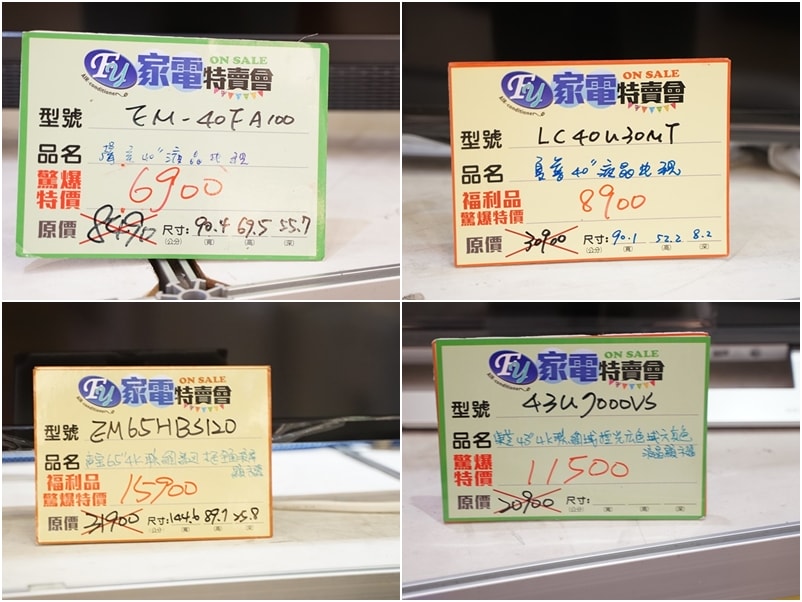 Fy 家電特賣會 ON SALE
AIR-conditioner
型號 EM-40FA100
品名 聲寶40"液晶電視
驚爆特價 6900
原價 尺寸: 90.4 69.5 55.7
(公分) (寬) (高) (深)
Fy 家電特賣會 ON SALE
AIR-conditioner
型號 LC40U30MT
品名 夏普40"液晶電視
福利品
驚爆特價 8900
原價 30900 尺寸: 90.1 52.2 8.2
(公分) (寬) (高) (深)
Fy 家電特賣會 ON SALE
AIR-conditioner
型號 EM65HBS120
品名 65"4K聯網
顯示器
福利品
驚爆特價 15900
原價 31900 尺寸: 144.6 89.7 25.8
(公分) (寬) (高) (深)
Fy 家電特賣會 ON SALE
AIR-conditioner
型號 43U7000VS
品名 43"4K聯網
液晶顯示器
驚爆特價 11500
原價 20900 尺寸:
(公分) (寬) (高) (深)